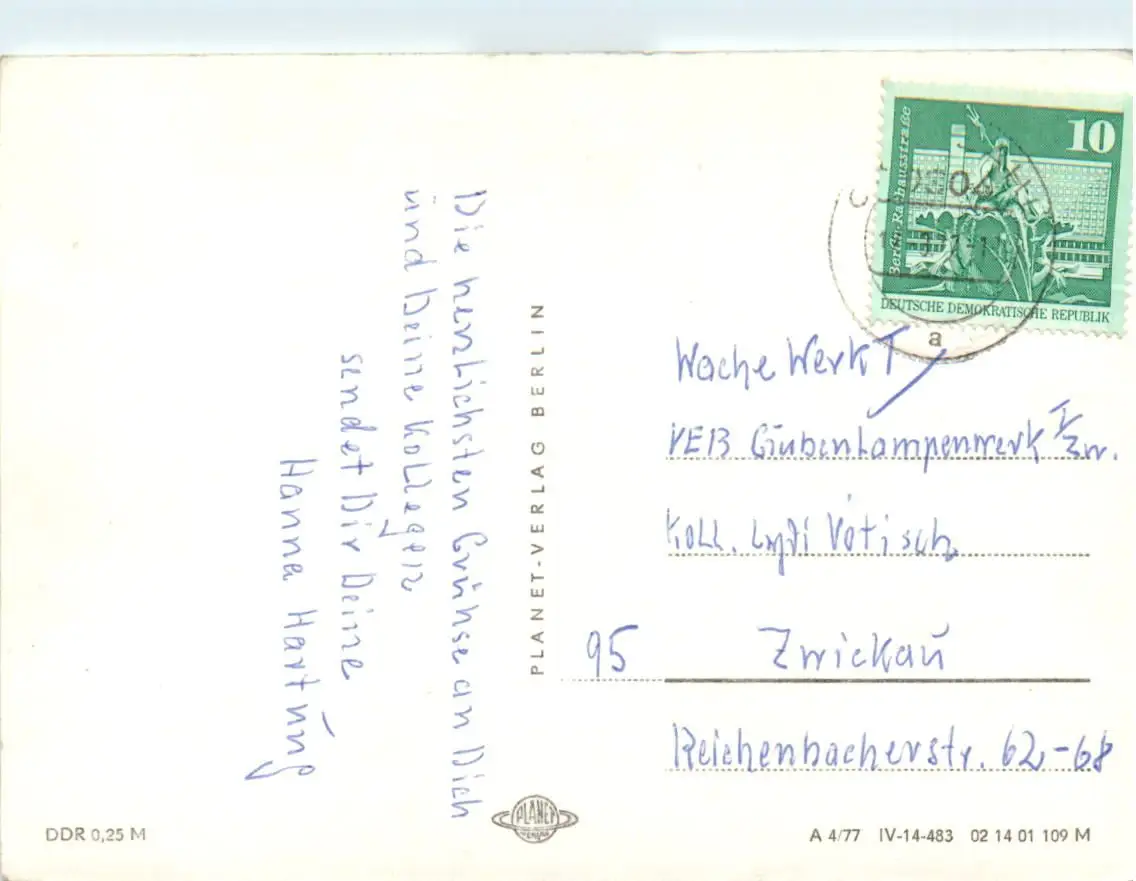 Die herzlichsten Grühse an Dich
und Deine Kollegen,
sendet Dir Deine
Hanna Hartung
PLANET-VERLAG BERLIN
10
Berlin-Rathausstraße
DEUTSCHE DEMOKRATISCHE REPUBLIK
a
Wache Werk I
VEB Grubenlampenwerk Zw.
Koll. Lydi Votisch
95 Zwickau
Reichenbacherstr. 62-68
PLANET
DDR 0,25 M
A 4/77 IV-14-483 02 14 01 109 M